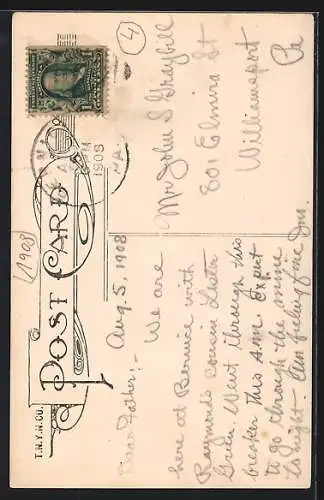 POST CARD
T.N.Y.N.CO.
(1908)
4
1908
PA.
Aug. 5, 1908
Dear Father:- We are
here at Bernice with
Raymond's cousin Lester
Green. Went through this
breaker this A.M. Expect
to go through the mine
tonight. Am feeling fine
Mr John S Graybill
801 Elmira St
Williamsport
Pa